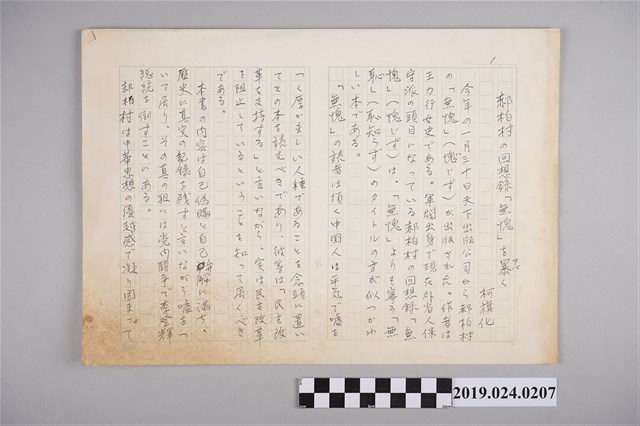 1
郝柏村の回想錄「無愧」を暴く
柯旗化
今年の一月三十日天下出版公司から郝柏村
の「無愧」(愧じず)が出版された。作者は
王力行女史である。軍閥出身で現在外省人保
守派の頭目になっている郝柏村の回想錄「無
愧」(愧じず)は、「無愧」よりも寧ろ「無
恥」(恥知らず)のタイトルの方が似つかわ
しい本である。
「無愧」の読者は須く中国人は平気で嘘を
つく厚かましい人種であることを念頭に置い
てこの本を読むべきであり、彼等は「民主改
革を支持する」と言いながら、実は民主改革
を阻止しているということを知って置くべき
である。
本書の内容は自己偽瞞と自己弁解に満ち、
歴史に真実の記録を残すと言いながら嘘をつ
いて居り、その真の狙いは党内闘争で李登輝
総統を倒すことにある。
郝柏村は中華思想の優越感で凝り固まって
2019.024.0207